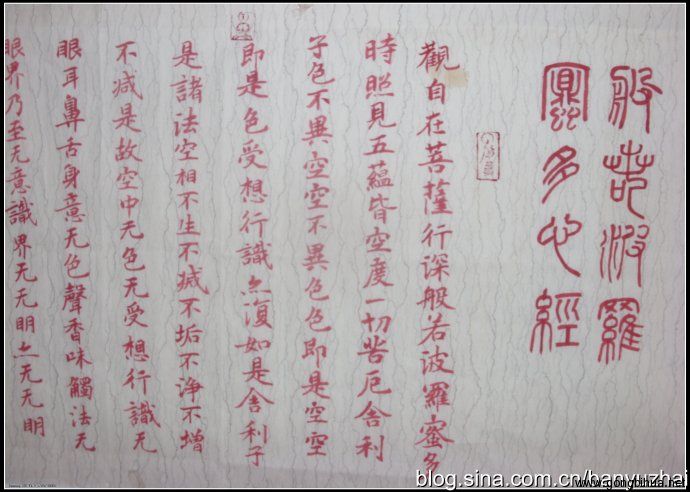 般若波羅
蜜多心經
觀自在菩薩行深般若波羅蜜多
時照見五蘊皆空度一切苦厄舍利
子色不異空空不異色色即是空空
即是色受想行識亦復如是舍利子
是諸法空相不生不滅不垢不淨不增
不减是故空中无色无受想行識无
眼耳鼻舌身意无色聲香味觸法无
眼界乃至无意識界无无明亦无无明
blog.sina.com.cn/banyuzhai
www.gongbihua.net